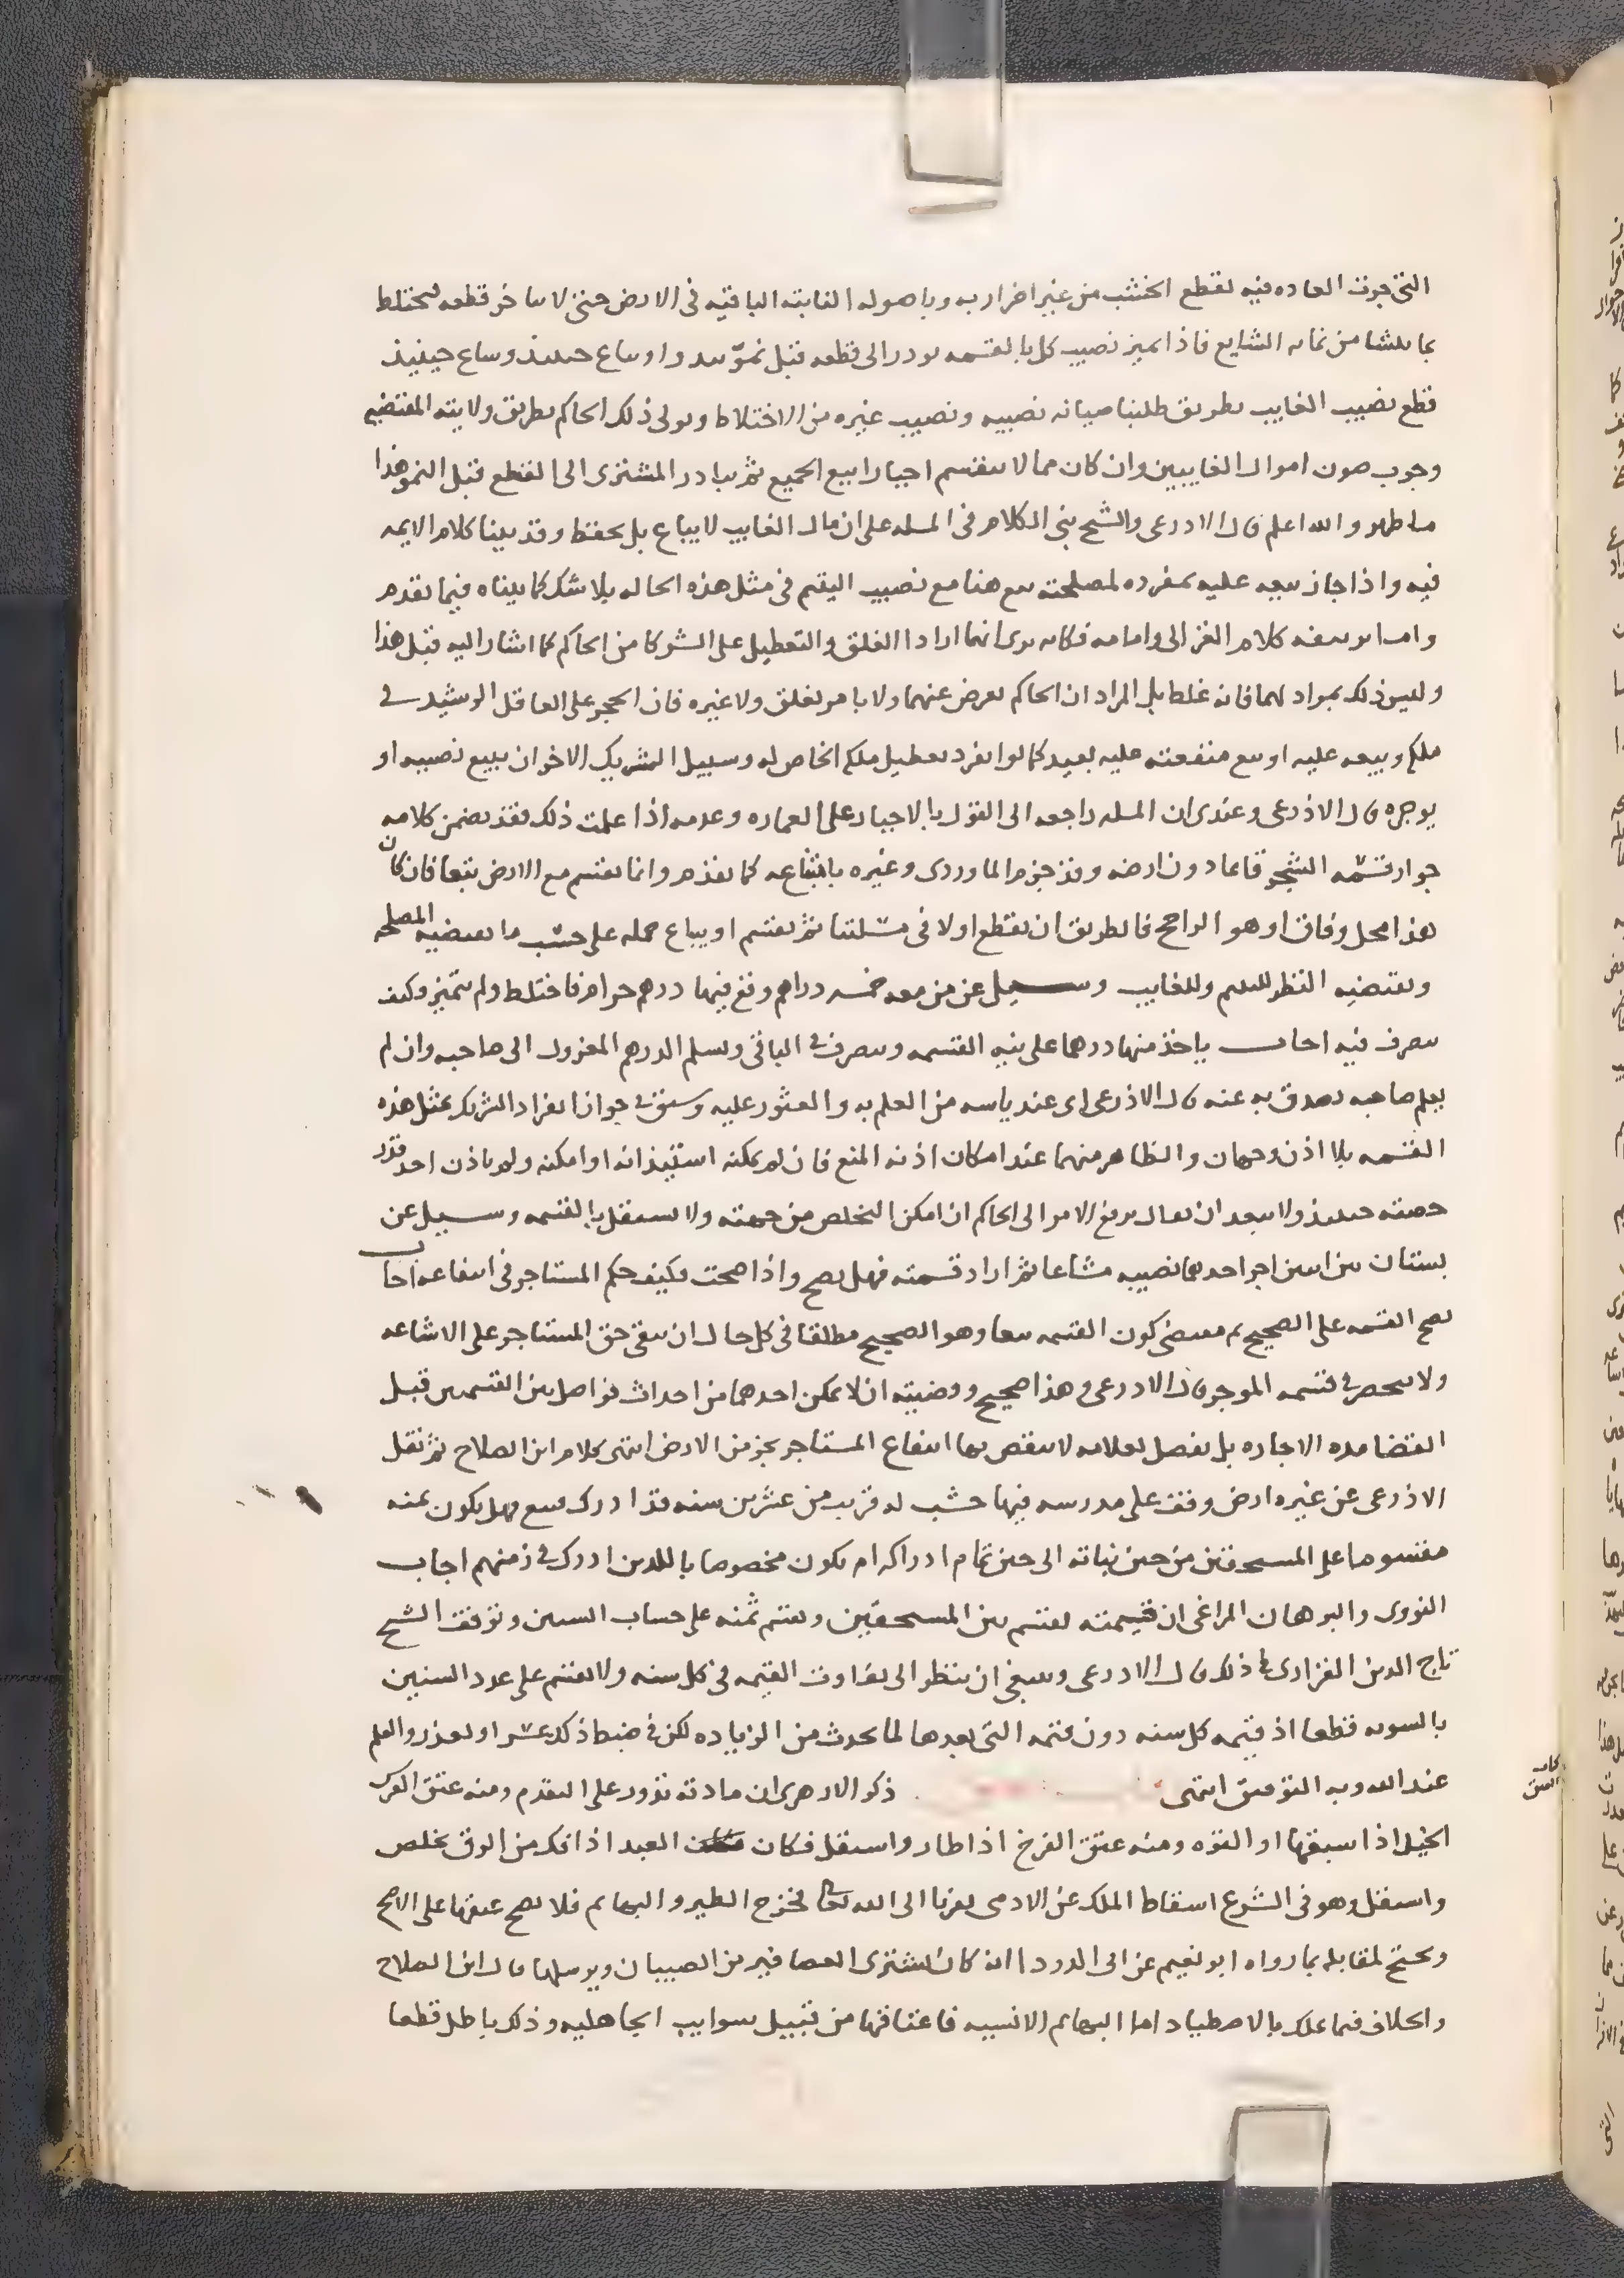 التي جرت العاده فيه لقطع الخشب من غير اضرار به وباصوله الثابته الباقيه في الارض حتى لا يتاخر قطعه ليختلط
بما ينشا من نمايه الشايع فاذا تميز نصيب كل بالقسمه بودر الى قطعه قبل نموه وساع حينيذ
قطع نصيب الغايب بطريق طلبنا صيانه نصيبه ونصيب غيره من الاختلاط ويولى ذلك الحاكم بطريق ولايته المقتضيه
وجوب صون اموال الغايبين وان كان مما لا ينقسم اجبارا بيع الجميع ثم يبادر المشترى الى القطع قبل النمو هذا
ما ظهر والله اعلم قال الاذرعى والشيخ بنى الكلام في المسله على ان مال الغايب لا يباع بل يحفظ وقد بينا كلام الايمه
فيه واذا جاز بيعه عليه بمفرده لمصلحته بيع هنا مع نصيب اليتيم في مثل هذه الحاله بلا شك كما بيناه فيما تقدم
واما كلام الغزالى وامامه فكانه يرى انهما ارادا الغلق والتعطيل على الشركا من الحاكم كما اشار اليه قبل هذا
وليس ذلك بمراد لهما فانه غلط بل المراد ان الحاكم يعرض عنهما ولا يامر بغلق ولا غيره فان الحجر على العاقل الرشيد في
ملكه وبيعه عليه او بيع منفعته عليه بعيد كما لو انفرد بتعطيل ملكه الخاص له وسبيل الشريك الاخر ان يبيع نصيبه او
يوجره قال الاذرعى وعندى ان المسله راجعه الى القول بالاجبار على العماره وعدمه اذا علمت ذلك فقد تضمن كلامه
جواز قسمه الشجر قايما دون ارضه وقد جزم الماوردى وغيره بامتناعه كما تقدم وانما يقسم مع الارض تبعا فان كان
هذا محل وفاق او هو الراجح فالطريق ان يقطع اولا في مسئلتنا ثم يقسم او يباع جمله على حسب ما تقتضيه المصلحه
ويقتضيه النظر لليتيم وللغايب وسيل عن من معه خمسه دراهم وقع فيها درهم حرام فاختلط ولم يتميز وكيف
يتصرف فيه اجاب ياخذ منها درهما على نيه القسمه ويتصرف في الباقى ويسلم الدرهم المعزول الى صاحبه وان لم
يعلم صاحبه تصدق به عنه قال الاذرعى اى عند ياسه من العلم به والعثور عليه وسبق في جواز انفراد الشريك بمثل هذه
القسمه بلا اذن وجهان والظاهر منهما عند امكان اذنه المنع فان لم يمكنه استيذانه او امكنه ولم ياذن اخذ قدر
حصته حينيذ ولا يبعد ان يقال يرفع الامر الى الحاكم ان امكن التخلص من جهته ولا يستقل بالقسمه وسيل عن
بستان بين اثنين اجر احدهما نصيبه مشاعا ثم اراد قسمته فهل يصح واذا صحت فكيف حكم المستاجر في انتفاعه اجاب
تصح القسمه على الصحيح ثم مقتضى كون القسمه بيعا وهو الصحيح مطلقا في كل حال ان يبقى حق المستاجر على الاشاعه
ولا ينحصر في قسمه الموجر قال الاذرعى وهذا صحيح وقضيته ان لا يمكن احدهما من احداث فواصل بين القسمين قبل
انقضا مده الاجاره بل يفصل بعلامه لا ينقص بها انتفاع المستاجر بجز من الارض انتهى كلام ابن الصلاح ثم نقل
الاذرعى عن غيره ارض وقفت على مدرسه فيها خشب له قريب من عشرين سنه قد ادرك فبيع فهل يكون ثمنه
مقسوما على المستحقين من حين نباته الى حين تمام ادراكه ام يكون مخصوصا بالذين ادرك في زمنهم اجاب
النووى والبرهان المراغى ان قيمته تقسم بين المستحقين ويقسم ثمنه على حساب السنين وتوقف الشيخ
تاج الدين الفزارى في ذلك قال الاذرعى وينبغى ان ينظر الى تفاوت القيمه في كل سنه ولا يقسم على عدد السنين
بالسويه قطعا اذ قيمه كل سنه دون قيمه التى بعدها لما يحدث من الزياده لكن في ضبط ذلك عسر او تعذر والعلم
عند الله وبه التوفيق انتهى ذكر الازهرى ان مادته تدور على التقدم ومنه عتق الفرس
كتاب العتق
الخيل اذا سبقها او القوه ومنه عتق الفرخ اذا طار واستقل فكان العبد اذا فك من الرق تخلص
واستقل وهو في الشرع اسقاط الملك عن الادمى تقربا الى الله تعالى فخرج الطير والبهايم فلا يصح عتقها على الاصح
ويحتج لمقابله بما رواه ابو نعيم عن ابى الدردا انه كان يشترى العصافير من الصبيان ويرسلها قال ابن الصلاح
والخلاف فيما يملك بالاصطياد اما البهايم الانسيه فاعتاقها من قبيل سوايب الجاهليه وذلك باطل قطعا